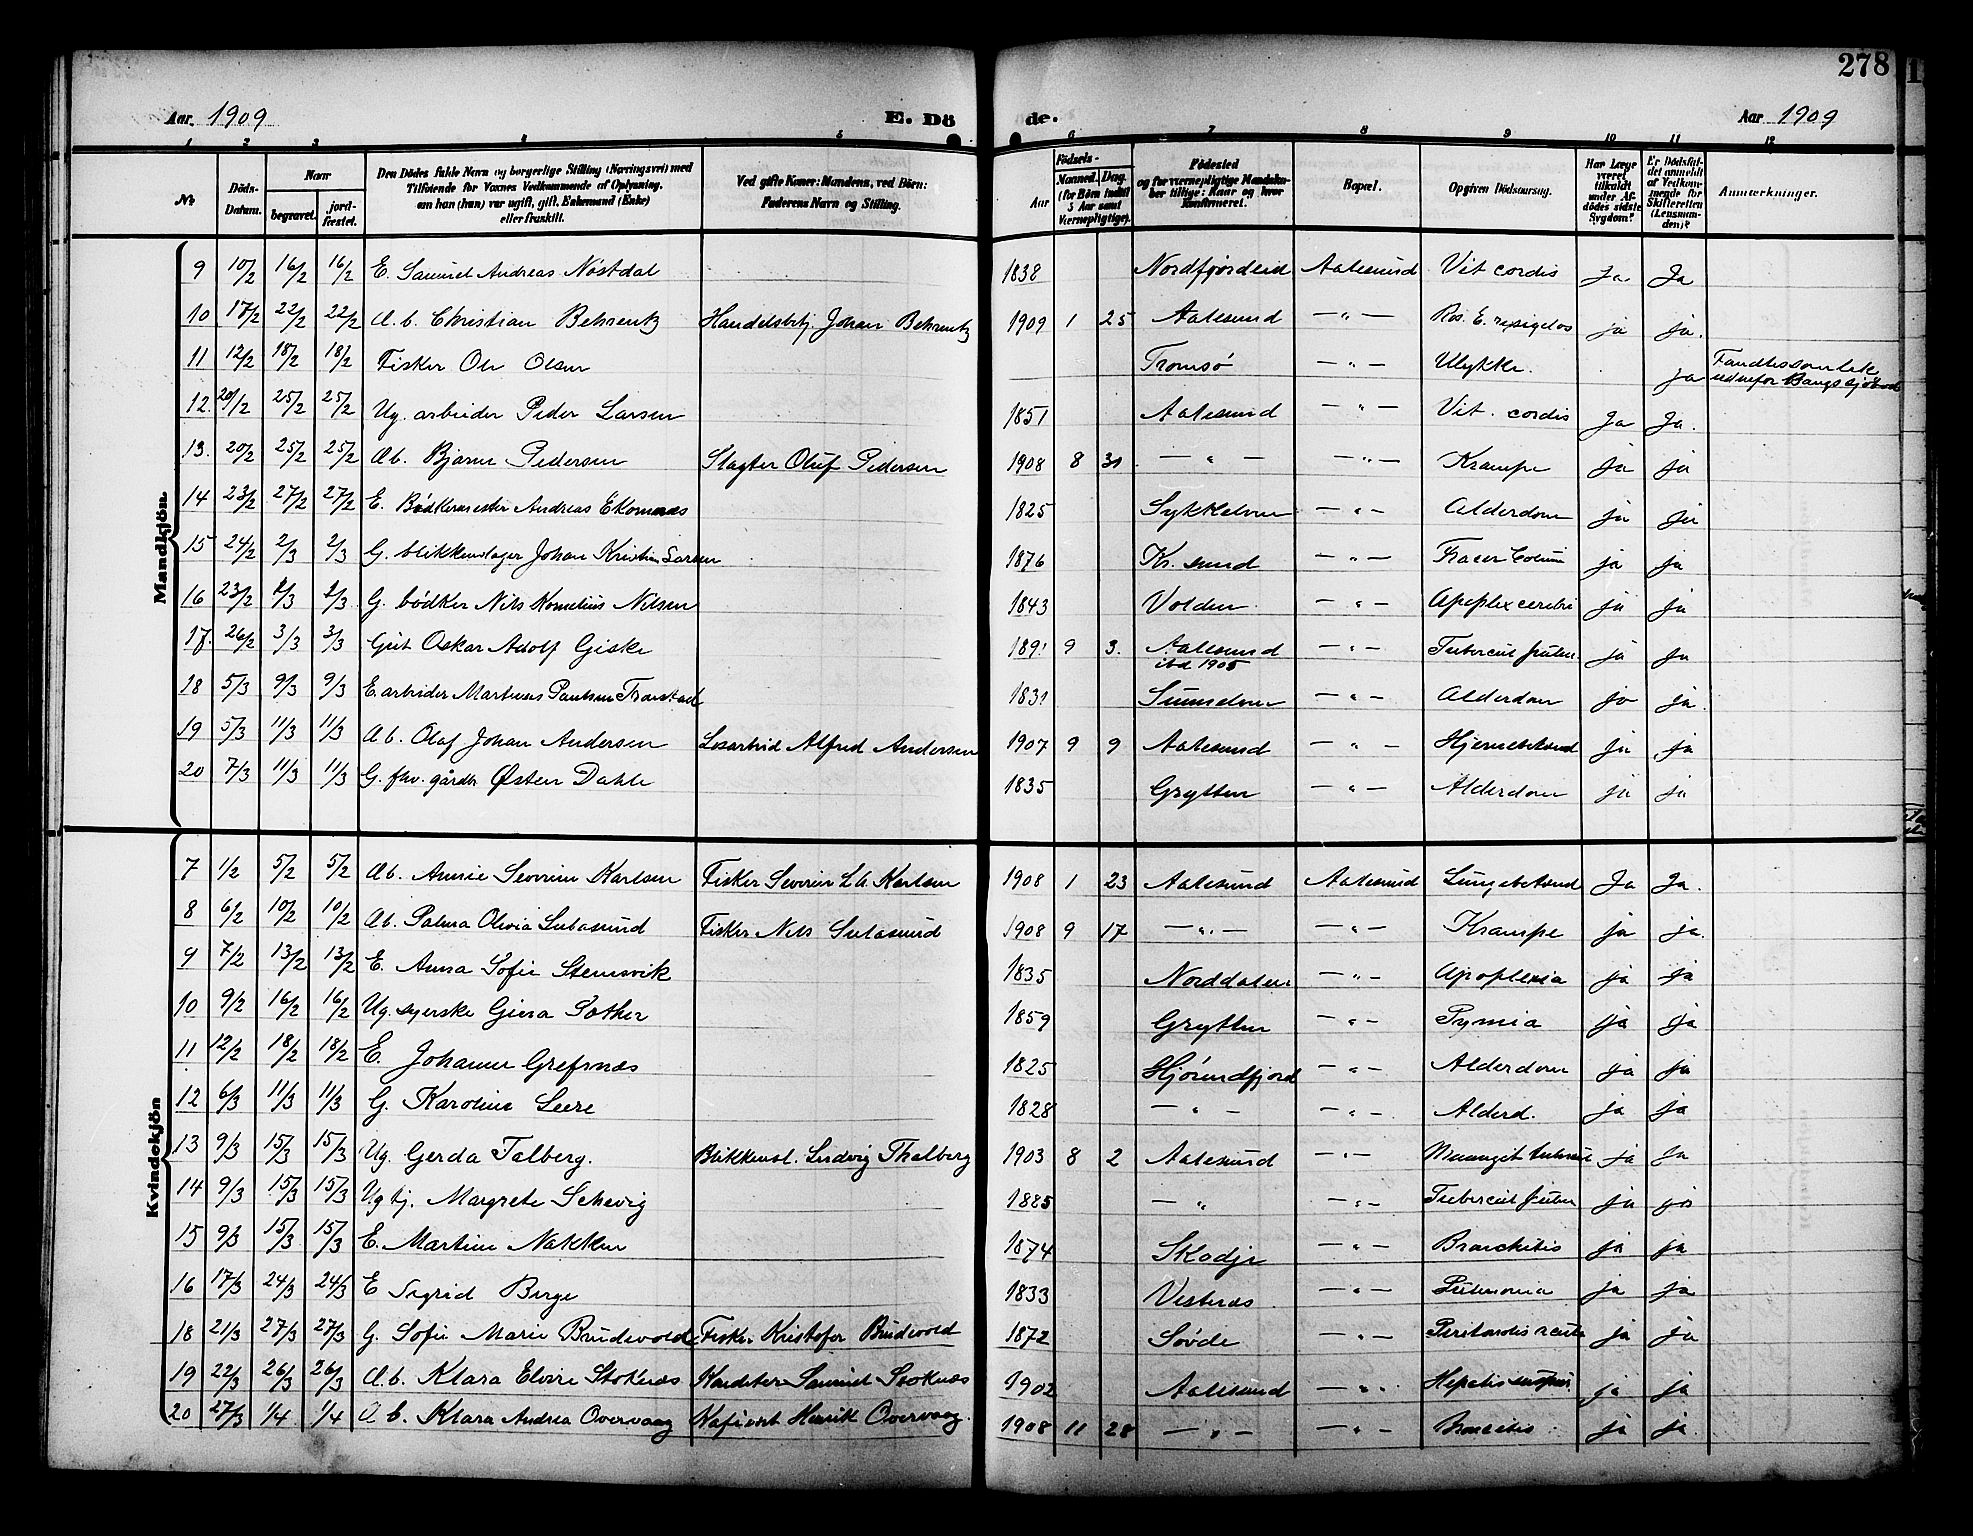 278
Aar 1909 E. Dö de. Aar 1909
1 2 3 4 5 6 7 8 9 10 11 12
№ Döds-Datum. Naar begravet. jord-fæstet. Den Dödes fulde Navn og borgerlige Stilling (Næringsvei) med Tilföiende for Voxnes Vedkommende af Oplysning, om han (hun) var ugift, gift, Enkemand (Enke) eller fraskilt. Ved gifte Koner: Mandens, ved Börn: Faderens Navn og Stilling. Födsels- Aar Maaned. Dag. (for Börn indtil 5 Aar samt Værnepligtige). Födested og for værnepligtige Mandskaber tillige: Naar og hvor Konfirmeret. Bopæl. Opgiven Dödsaarsag. Har Læge været tilkaldt under Afdödes sidste Sygdom? Er Dödsfaldet anmeldt af Vedkommende for Skifteretten (Lensmanden)? Anmærkninger.
Mandkjön
9 10/2 16/2 16/2 E. Samuel Andreas Nøstdal 1838 Nordfjordeid Aalesund Vit cordis Ja Ja
10 17/2 22/2 22/2 Æ. b. Christian Behrentz Handelsbetj. Johan Behrentz 1909 1 25 Aalesund — " — ja ja.
11 12/2 18/2 18/2 Fisker Ole Olsen Tromsø — " — Ulykke. ja
12. 20/2 25/2 25/2 Ug. arbeider Peder Larsen 1851 Aalesund — " — Vit. cordis Ja Ja.
13. 20/2 25/2 25/2 Æb. Bjarne Pedersen Slagter Oluf Pedersen 1908 8 31 — " — — " — Krampe ja ja
14 23/2 27/2 27/2 E. Bødkermester Andreas Ekornæs 1825 Sykkelven — " — Alderdom ja ja
15 24/2 2/3 2/3 G. blikkenslager Johan Kristian Larsen 1876 Kr. sund — " — ja ja
16 23/2 2/3 2/3 G. bødker Nils Kornelius Nilsen 1843 Volden — " — Apoplex cerebri ja ja
17. 26/2 3/3 3/3 Gut Oskar Adolf Giske 1891 9 3. Aalesund ibd 1905 — " — ja ja
18 5/3 9/3 9/3 E. arbeider Martinus Paulsen 1831 — " — Alderdom ja ja.
19 5/3 11/3 11/3 Æb. Olaf Johan Andersen Løsarbeid Alfred Andersen 1907 9 9 Aalesund — " — Hjernebetænd ja ja
20 7/3 11/3 11/3 G. fhv. gårdbr Østen Dahle 1835 Grytten — " — Alderdom ja ja
Kvindekjön
7 1/2 5/2 5/2 Æb. Annie Severine Karlsen Fisker Severin L.A. Karlsen 1908 1 23 Aalesund Aalesund Lungebetænd Ja Ja.
8 6/2 10/2 10/2 Æb. Palma Olivia Sulasund Fisker Nils Sulasund 1908 9 17 — " — — " — Krampe ja ja.
9 7/2 13/2 13/2 E. Anna Sofie Stemsvik 1835 Norddalen — " — Apoplexia ja ja
10 9/2 16/2 16/2 Ug. syerske 1859 Grytten — " — Pymia ja ja
11 12/2 18/2 18/2 E. Johanne Grefsnæs 1825 Hjørundfjord — " — Alderdom ja ja
12 6/3 11/3 11/3 G. Karoline Leere 1828 — " — — " — Alderd. ja ja
13 9/3 15/3 15/3 Ug. Gerda Talberg. Blikkensl. Ludvig Thalberg 1903 8 2 Aalesund — " — ja ja
14 9/3 15/3 15/3 Ug tj. Margrete Schevig 1885 — " — " — ja ja
15 9/3 15/3 15/3 E. Martine Nakken 1874 Skodje — " — Bronchitis ja ja
16 17/3 24/3 24/3 E Sigrid Berge 1833 Vestnæs — " — ja ja
18 21/3 27/3 27/3 G. Sofie Marie Brudevold Fisker Kristofer Brudevold 1872 Søvde — " — ja ja
19 22/3 26/3 26/3 Æ. b. Klara Elvire Stoknæs Samuel Stoknæs 1902 Aalesund — " — ja ja
20 27/3 1/4 1/4 Æ b. Klara Andrea Overvaag Kafévert Henrik Overvaag. 1908 11 28 — " — — " — ja ja.